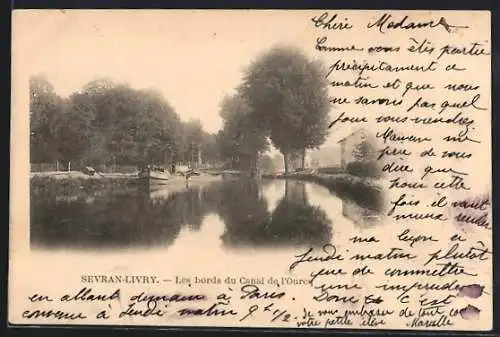 Chère Madame
Comme vous êtes partie
précipitament ce
matin et que nous
ne savons pas quel
jour vous viendrez
Maman me
prie de vous
dire que
pour cette
fois il vaut
mieux rendre
ma leçon plutôt
Jeudi matin que de commettre
une imprudence
SEVRAN-LIVRY. — Les bords du Canal de l'Ourcq
en allant demain à Paris. Donc c'est
convenu à Jeudi matin 9h 1/2
Je vous embrasse de tout cœur
votre petite élève Marcelle